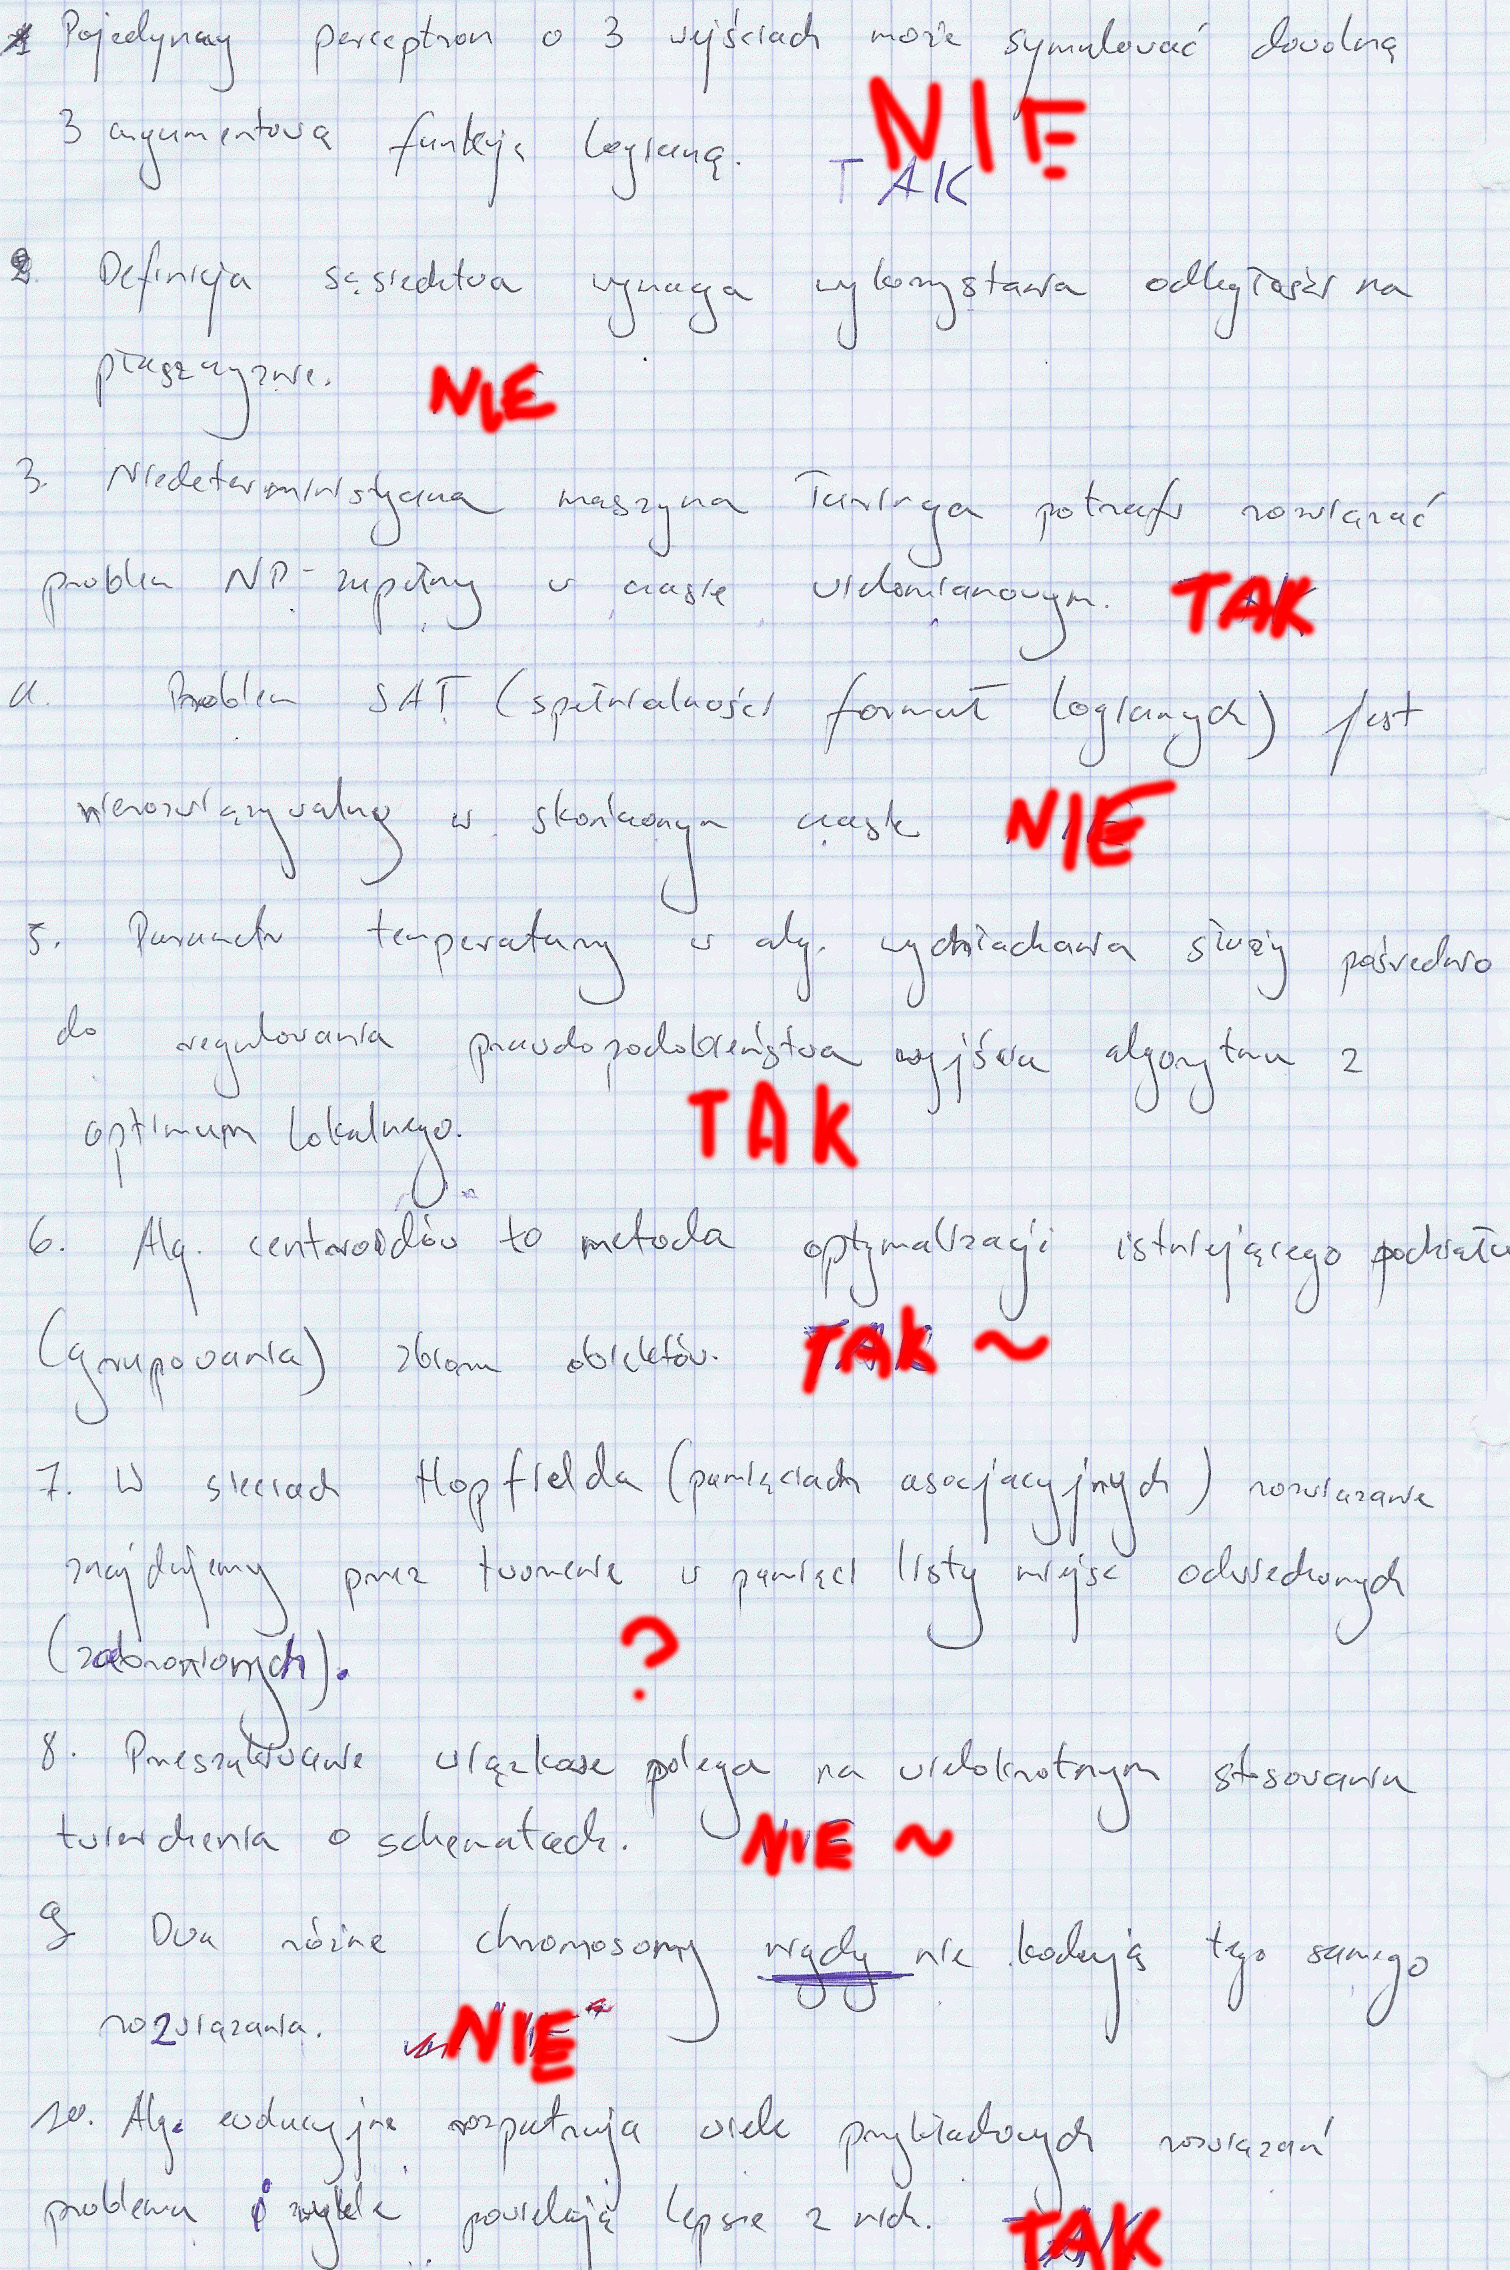 1 Pojedynczy perceptron o 3 wejściach może symulować dowolną
3 argumentową funkcję logiczną. NIE
TAK
2. Definicja sąsiedztwa wymaga wykorzystania odległości na
płaszczyznie. NIE
3. Niedeterministyczna maszyna Turinga potrafi rozwiązać
problem NP-zupełny w czasie wielomianowym. TAK
4. Problem SAT (spełnialności formuł logicznych) jest
nierozwiązywalny w skończonym czasie NIE
5. Parametr temperatury w alg. wychładzania służy pośrednio
do regulowania prawdopodobieństwa wyjścia algorytmu z
optimum lokalnego. TAK
6. Alg. centroidów to metoda optymalizacji istniejącego podziału
(grupowania) zbioru obiektów. TAK ~
7. W sieciach Hopfielda (pamięciach asocjacyjnych) rozwiazanie
znajdujemy przez tworzenie w pamięci listy miejsc odwiedzonych
(zabronionych). ?
8. Przeszukiwanie wiązkowe polega na wielokrotnym stosowaniu
twierdzenia o schematach. NIE ~
9 Dwa różne chromosomy nigdy nie kodują tego samego
rozwiązania. NIE
10. Alg. ewolucyjne rozpatrują wiele przykładowych rozwiązań
problemu i zwykle powielają lepsze z nich. TAK